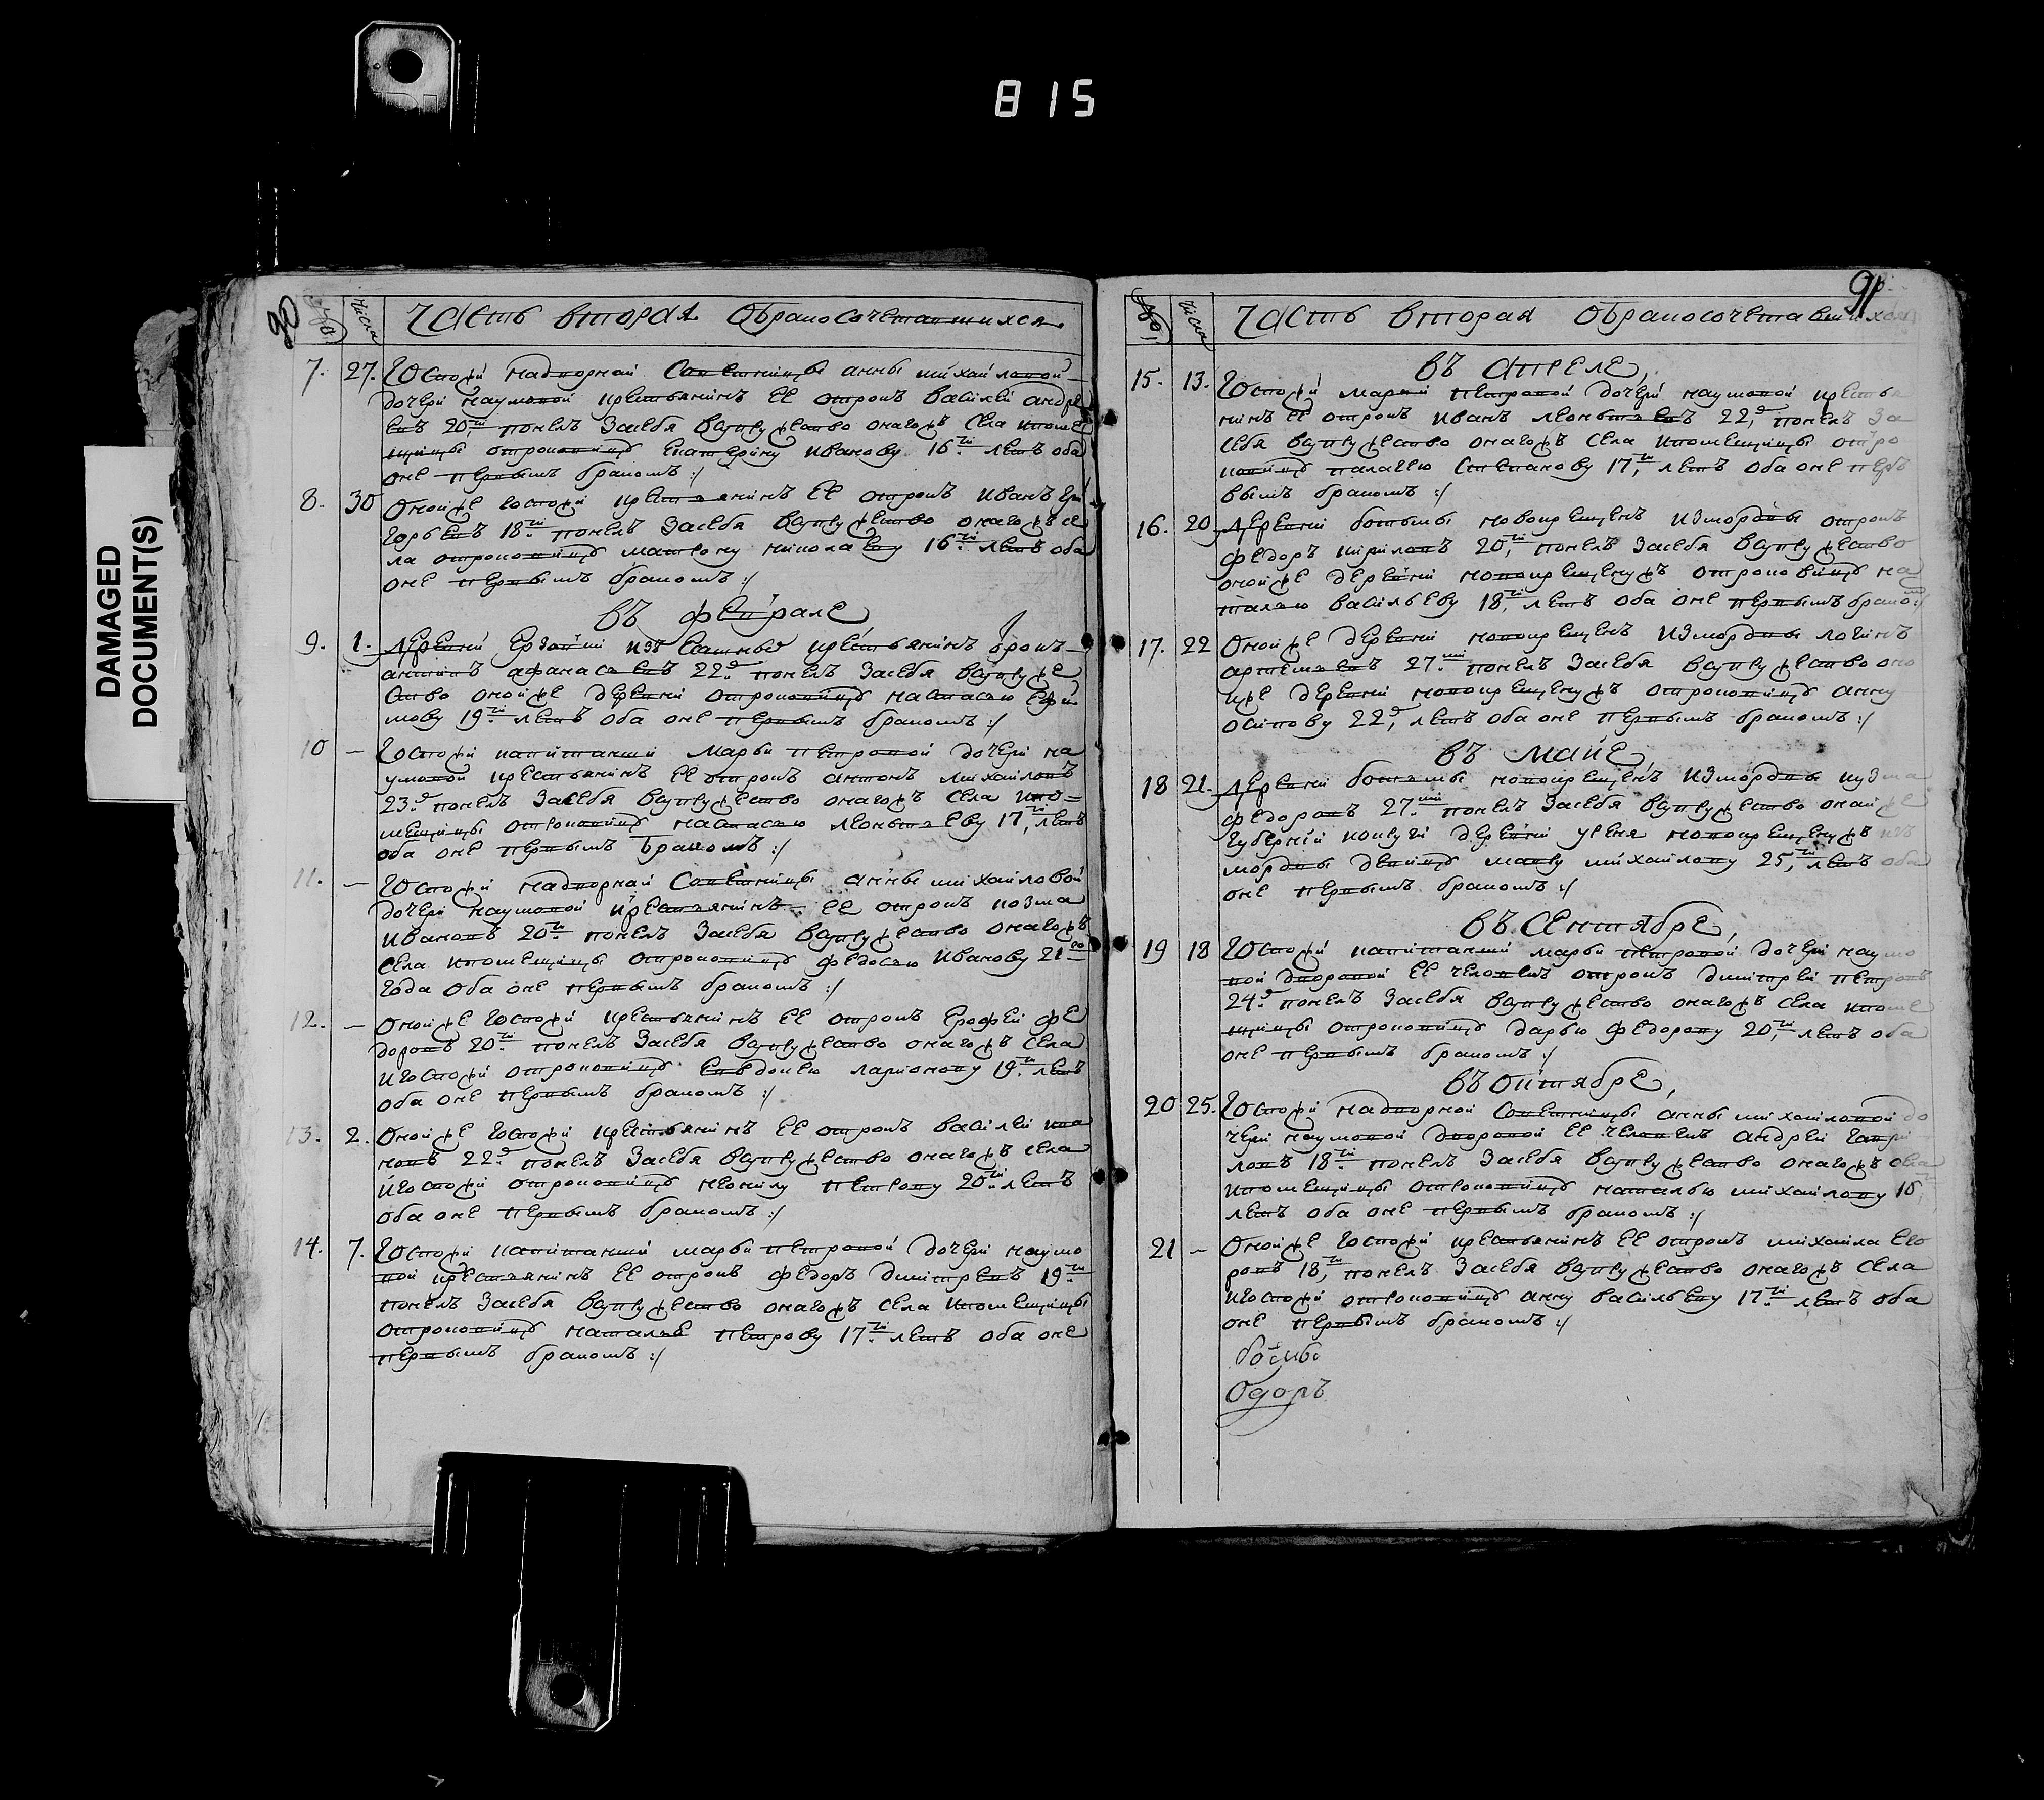 815
DAMAGED
DOCUMENT(S)
90
Число
Часть вторая Обракосочетавшихся
7. 27. Госпожи надворной Советницы анны михайловой
дочери наумовой крестьянинъ ее отрокъ василей андре
евъ 20ти понелъ засебя всупружество онагожъ села ипоме
щицы отроковицу екатерину иванову 16ти летъ оба
оне первымъ бракомъ :/
8. 30 Оной же госпожи крестьянинъ ее отрокъ иванъ гри
горьевъ 18ти понелъ засебя всупружество онагожъ се
ла отроковицу матрону николаеву 16ти летъ оба
оне первымъ бракомъ :/
въ феврале
9. 1. Деревни изъ крестьянинъ
афанасьевъ 22д понелъ засебя всупруже
ство онойже деревни отроковицу настасью ефи
мову 19ти летъ оба оне первымъ бракомъ :/
10 – Госпожи капитанши марьи петровой дочери на
умовой крестьянинъ ее отрокъ антонъ михайловъ
23д понелъ засебя всупружество онагожъ села ипо=
мещицы отроковицу настасью леонтьеву 17ти летъ
оба оне первымъ бракомъ :/
11. – Госпожи надворнай Советницы анны михайловой
дочери наумовой крестьянинъ ее отрокъ козма
ивановъ 20ти понелъ засебя всупружество онагожъ
села ипомещицы отроковицу федосью иванову 21го
года оба оне первымъ бракомъ :/
12. – Оной же госпожи крестьянинъ ее отрокъ ерофей фе
доровъ 20ти понелъ засебя всупружество онагожъ села
игоспожи отроковицу евдокею ларионову 19ти летъ
оба оне первымъ бракомъ :/
13. 2. Оной же госпожи крестьянинъ ее отрокъ василей ива
новъ 22д понелъ засебя всупружество онагожъ села
игоспожи отроковицу неонилу петрову 20ти летъ
оба оне первымъ бракомъ :/
14. 7. Госпожи капитанши марьи петровой дочери наумо
вой крестьянинъ ее отрокъ федоръ дмитревъ 19ти
понелъ засебя всупружество онагожъ села ипомещицы
отроковицу наталью петрову 17ти летъ оба оне
первымъ бракомъ :/
91
Число
Часть вторая Обракосочетавшихся
въ апреле,
15. 13. Госпожи марьи петровой дочери наумовой крестья
нинъ ее отрокъ иванъ леонтьевъ 22д понелъ за
себя всупружество онагожъ села ипомещицы отро
ковицу палагею степанову 17ти летъ оба оне пер
вымъ бракомъ :/
16. 20 Деревни ботьмы новокрещенъ измордвы отрокъ
федоръ кириловъ 20ти понелъ засебя всупружество
онойже деревни новокрещенужъ отроковицу на
талью васильеву 18ти летъ оба оне первымъ браком :/
17. 22 Онойже деревни новокрещенъ измордвы логинъ
артемьевъ 27ми понелъ засебя всупружество оно
йже деревни новокрещенужъ отроковицу анну
осипову 22д летъ оба оне первымъ бракомъ :/
въ майе
18 21. Деревни ботьмы новокрещенъ измордвы кузма
федоровъ 27ми понелъ засебя всупружество онай же
губернии деревни новокрещенужъ изъ
мордвы девицу мавру михайлову 25ти летъ оба
оне первымъ бракомъ :/
въ сентябре,
19 18 Госпожи капитанши марьи петровой дочери наумо
вой дворовой ее человекъ отрокъ дмитрей петровъ
24д понелъ засебя всупружество онагожъ села ипоме
щицы отроковицу дарью федорову 20ти летъ оба
оне первымъ бракомъ :/
въ октябре,
20 25. Госпожи надворной Советницы анны михайловой до
чери наумовой дворовой ее человекъ андрей гаври
ловъ 18ти понелъ засебя всупружество онагожъ села
ипомещицы отроковицу наталью михайлову
летъ оба оне первымъ бракомъ :/
21 – Онойже госпожи крестьянинъ ее отрокъ михайла его
ровъ 18ти понелъ засебя всупружество онагожъ села
игоспожи отроковицу анну васильеву 17ти летъ оба
оне первымъ бракомъ :/